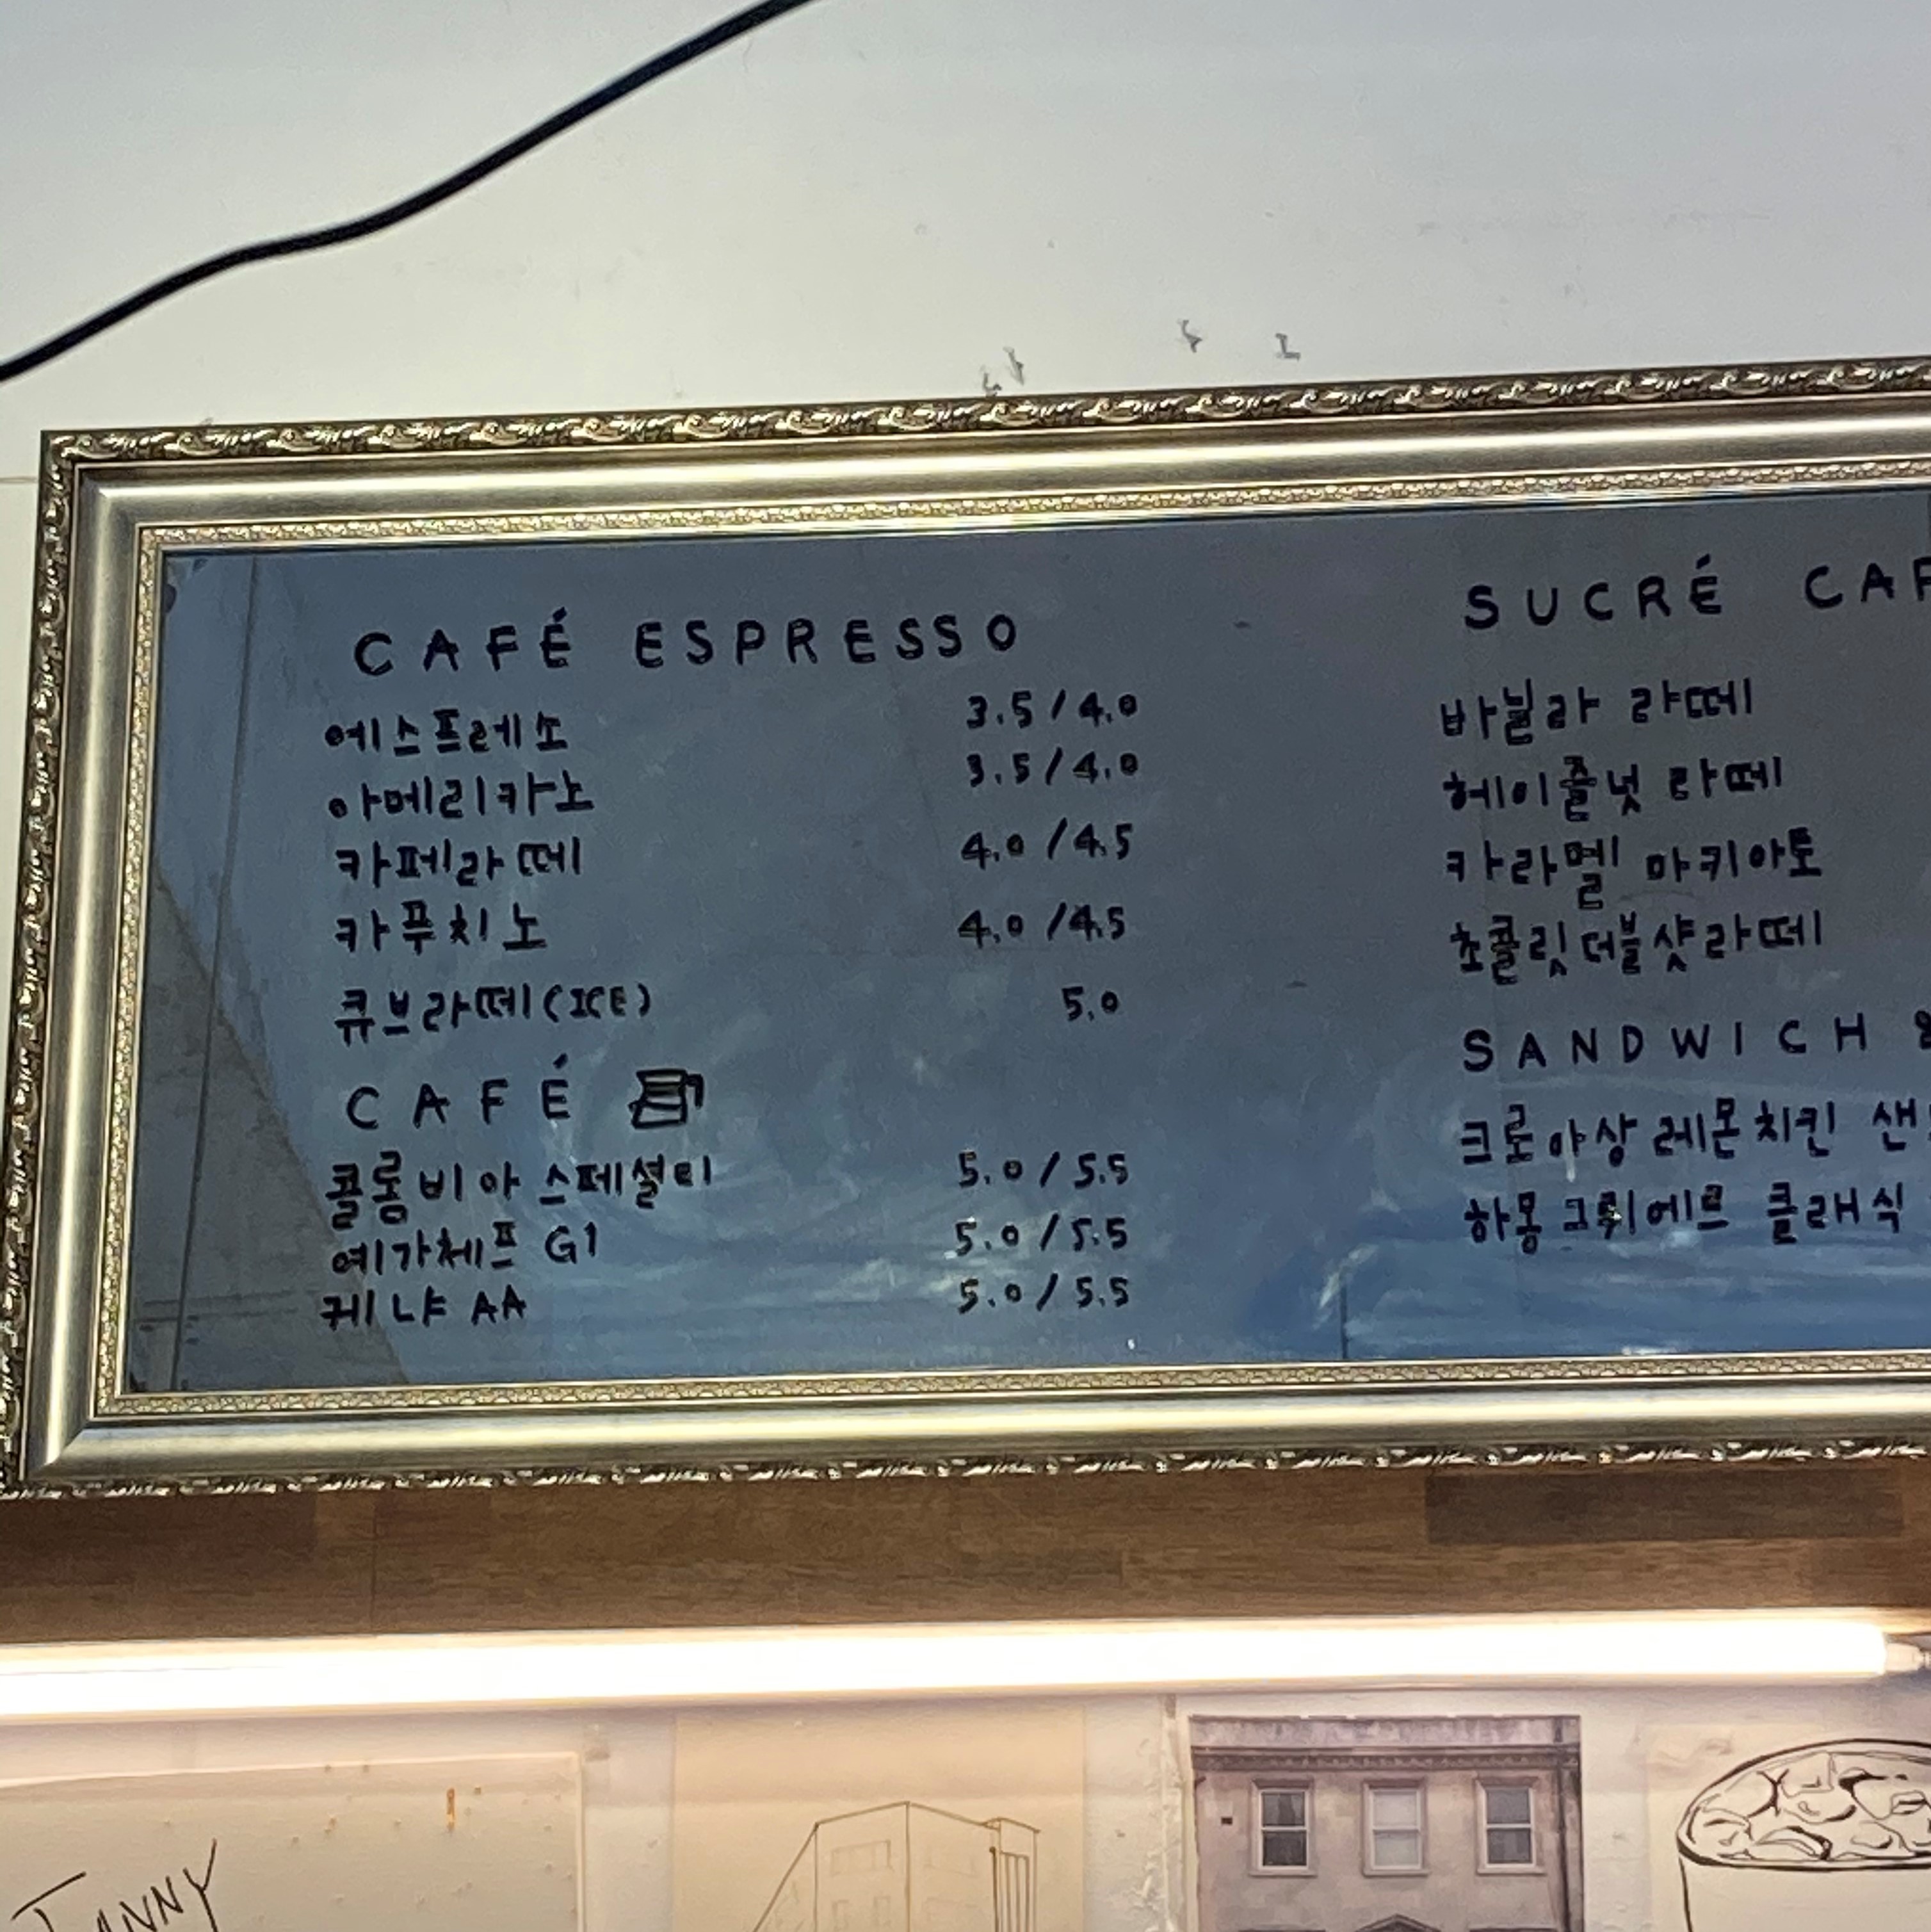 CAFÉ ESPRESSO
에스프레소 3.5/4.0
아메리카노 3.5/4.0
카페라떼 4.0/4.5
카푸치노 4.0/4.5
큐브라떼(ICE) 5.0
CAFÉ
콜롬비아 스페셜티 5.0/5.5
예가체프 G1 5.0/5.5
케냐 AA 5.0/5.5
SUCRÉ
바닐라 라떼
헤이즐넛 라떼
카라멜 마키아토
초콜릿더블샷라떼
SANDWICH
크로아상 레몬치킨
하몽 그뤼에르 클래식